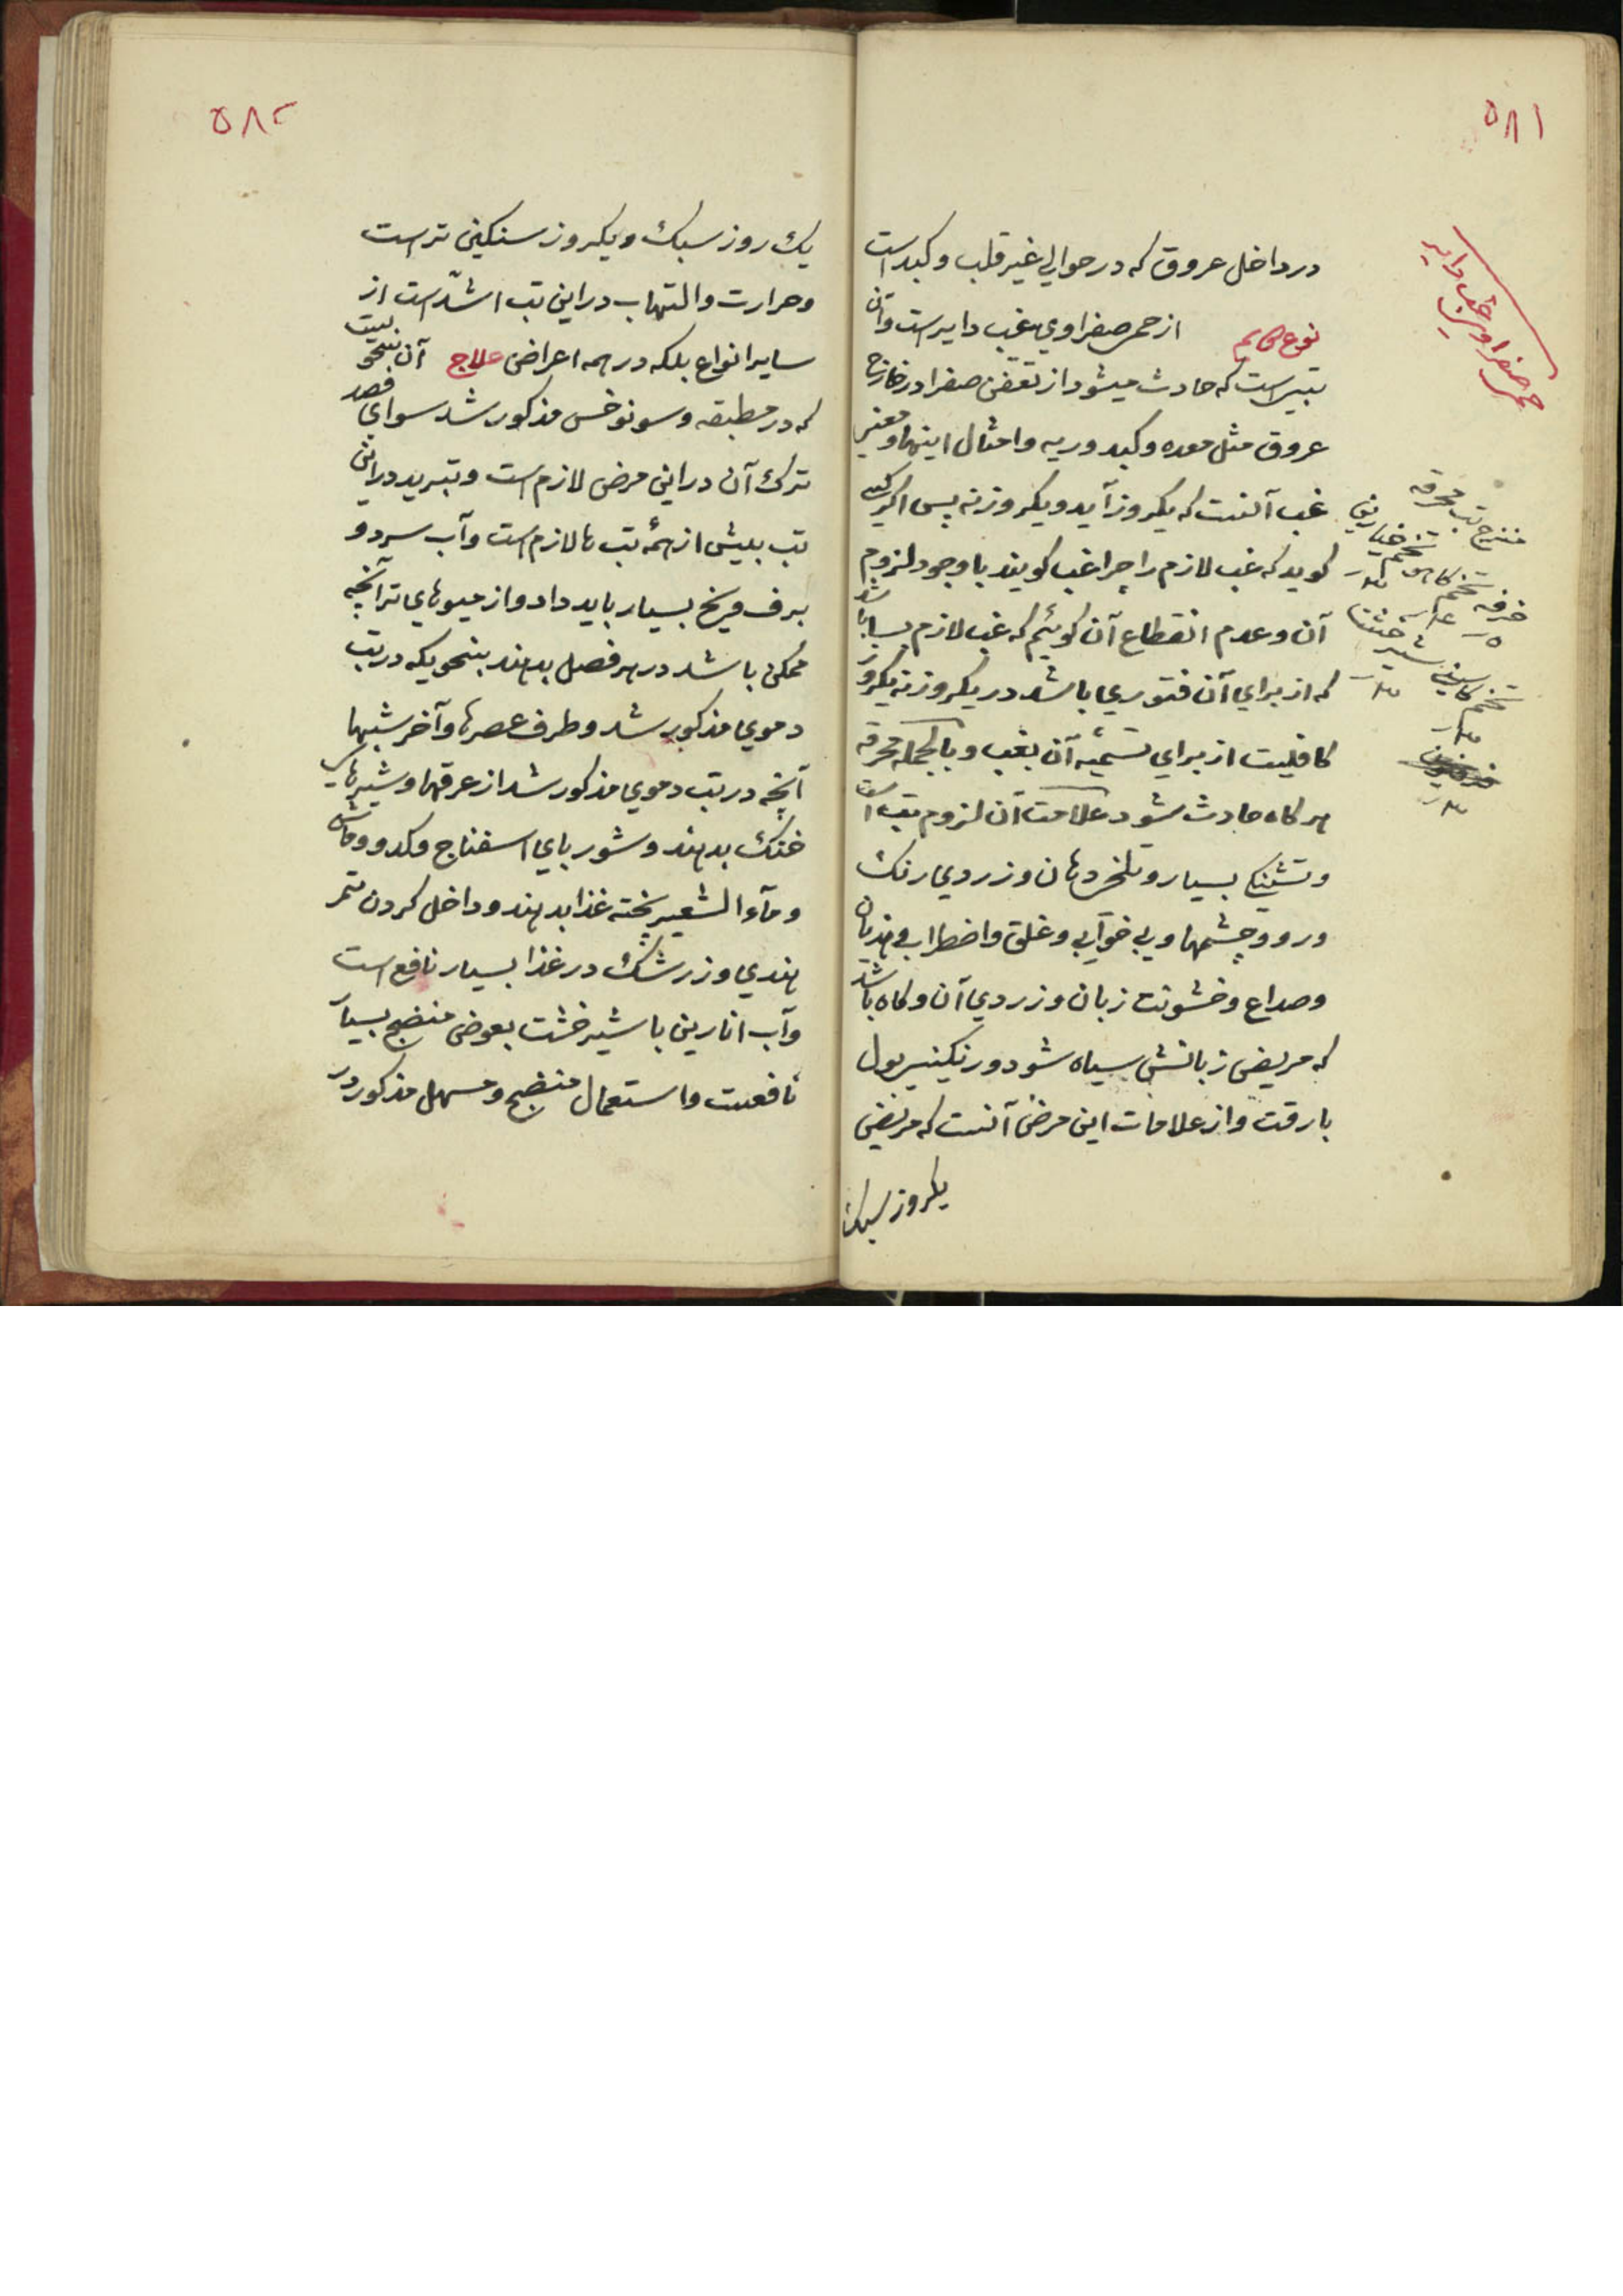 ۵۸۱
حمی صفراوی غب دایر
در داخل عروق که در حوالی غیر قلب و کبد است
نوع سیم از حمی صفراوی غب دایر است و آن
تبیست که حادث میشود از تعفن صفرا در خارج
عروق مثل معده و کبد و ریه و امثال اینها و معنی
غب آنست که یکروز آید و یکروز نه پس اگر کسی
گوید که غب لازم را چرا غب گویند با وجود لزوم
آن و عدم انقطاع آن گوئیم که غب لازم بسا باشد
که از برای آن فتوری باشد در یکروز نه یکروز
کافیست از برای تسمیه آن بغب و بالجمله محرقه
هر گاه حادث شود علامت آن لزوم تب است
و تشنگی بسیار و تلخی دهان و زردی رنگ
و رو و چشمها و بی خوابی و غلق و اضطراب و هذیان
و صداع و خشونت زبان و زردی آن و گاه باشد
که مریض زبانش سیاه شود و رنگینی بول
با رقت و از علامات این مرض آنست که مریض
یکروز سبک
منضج تب محرقه
تخم خیارین
خرفه تخم کاهو
شیرخشت
تخم کاسنی
۵۸۲
یک روز سبک و یکروز سنگین تر است
و حرارت و التهاب در این تب اشدّ است از
سایر انواع بلکه در همه اعراض علاج آن بنحویست
که در مطبقه و سونوخس مذکور شد سوای فصد
ترک آن در این مرض لازم است و تبرید در این
تب بیش از همه تب ها لازم است و آب سرد و
برف و یخ بسیار باید داد و از میوهای تر آنچه
ممکن باشد در هر فصل بدهند بنحویکه در تب
دموی مذکور شد و طرف عصرها و آخر شبها
آنچه در تب دموی مذکور شد از عرقها و شیرهای
خنک بدهند و شوربای اسفناج و کدو و ماش
و مآء الشعیر پخته غذا بدهند و داخل کردن تمر
هندی و زرشک در غذا بسیار نافع است
و آب انارین با شیرخشت بعوض منضج بسیار
نافعست و استعمال منضج و مسهل مذکور در